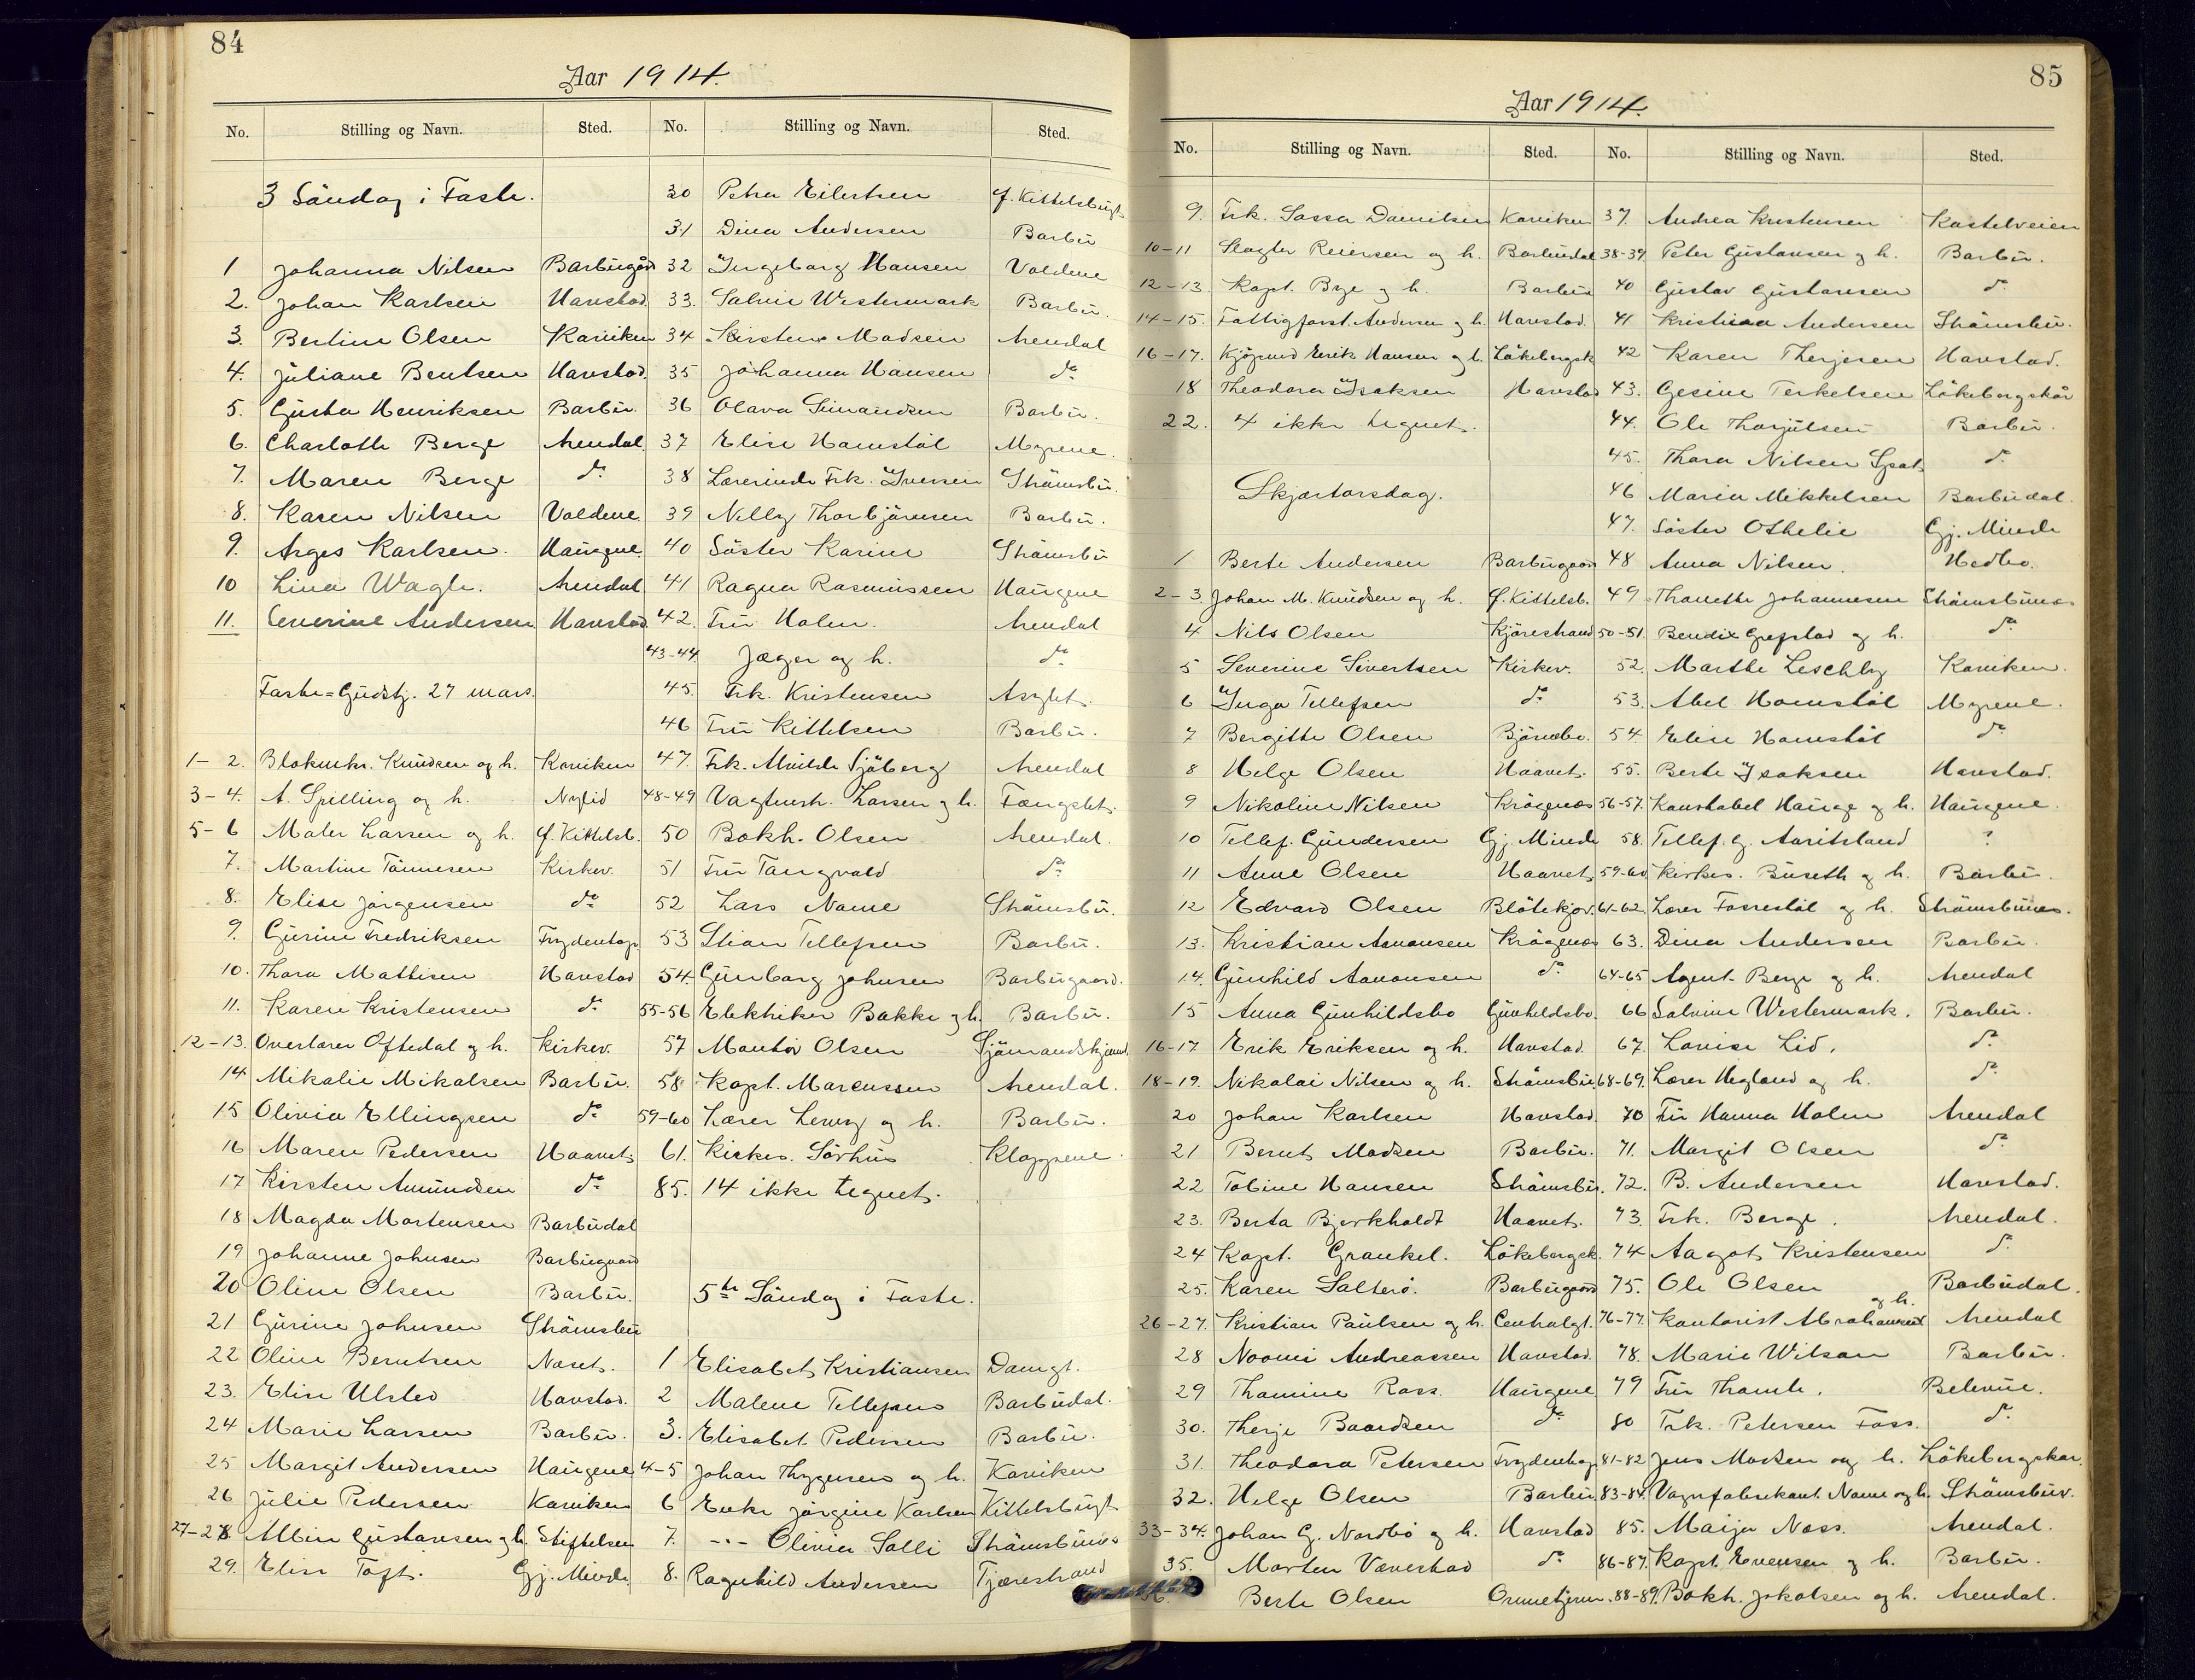 84
Aar 1914.
No. Stilling og Navn. Sted.
3 Söndag i Faste.
1 Johanna Nilsen Barbugård
2. Johan Karlsen Havstad.
3. Bertine Olsen Karviken
4. Juliane Bentsen Havstad.
5. Gusta Henriksen Barbu.
6. Charlotte Berge Arendal
7. Maren Berge do
8. Karen Nilsen Voldene
9. Arges Karlsen. Haugene
10 Lina Wagle. Arendal
11. Severine Andersen Havstad
Faste=Gudstj. 27 mars.
1-2. Blokmkr. Knudsen og h. Karviken
3-4. A. Spilling og h. Nylid
5-6 Maler Larsen og h. f. Kittelsb.
7. Martine Tönnesen Kirkev.
8. Elise Jörgensen do
9. Gurine Fredriksen Frydenhap
10. Thora Mathisen Havstad
11. Karen Kristensen do
12-13. Overlærer Oftedal og h. Kirkev.
14 Mikalie Mikalsen Barbu.
15 Olivia Ellingsen do
16 Maren Pedersen Haavet
17 Kirsten Amundsen do
18 Magda Mortensen Barbudal
19 Johanne Johnsen Barbugaard
20 Oline Olsen Barbu.
21 Gurine Johnsen Strömsbu
22 Oline Berntsen Næset.
23. Elise Ulsted Havstad.
24 Marie Larsen Barbu.
25 Margit Andersen Haugene
26 Julie Pedersen Karviken
27-28. Albin Gustavsen og h. Stiftelsen
29. Elise Toft. Gj. Minde
No. Stilling og Navn. Sted.
30 Petra Eilertsen f. Kittelsbugt
31 Dina Andersen Barbu
32 Ingeborg Hansen Voldene
33. Salvine Westermark Barbu.
34 Kirstene Madsen Arendal
35 Johanna Hansen do
36 Olava Simondsen Barbu.
37 Elise Homstöl Myrene.
38 Lærerinde Frk. Iversen Strömsbu.
39 Nelly Thorbjörnsen Barbu.
40 Söster Karine Strömsbu
41 Ragna Rasmussen Haugene
42. Fru Holm. Arendal
43-44 Jæger og h. do
45. Frk. Kristensen Asylet.
46 Fru Kittelsen Barbu.
47. Frk. Alvilde Sjöberg Arendal
48-49 Vagtmstr. Larsen og h. Fængslet.
50 Bokh. Olsen Arendal.
51 Fru Tangvald do
52 Lars Name Strömsbu.
53 Stian Tellefsen Barbu.
54. Gunborg Johnsen Barbugaard.
55-56 Elektriker Bakke og h. Barbu.
57 Montör Olsen Sjömandshjem.
58 Kapt. Marcussen Arendal.
59-60 Lærer Levy og h. Barbu.
61. Kirkes. Sörhus Kloppene.
85. 14 ikke tegnet.
5te Söndag i Faste.
1 Elisabet Kristiansen Damgt.
2 Malene Tellefsen Barbudal.
3. Elisabet Pedersen Barbu.
4-5 Johan Thygesen og h. Karviken
6 Enke Jörgine Karlsen Kittelsbugt
7. -"- Olivia Salli Strömsbunes
8. Ragnhild Andersen Tjærestrand
85
Aar 1914.
No. Stilling og Navn. Sted.
9. Frk. Sassa Danielsen Karviken
10-11 Slagter Reiersen og h. Barbudal
12-13. Kapt. Bye og h. Barbu
14-15. Fattigforst. Andersen og h. Havstad.
16-17. Kjöpmd Eerik Hansen og h. Løkebergsk
18 Theodora Isaksen Havstad
22. 4 ikke tegnet.
Skjærtorsdag.
1 Berte Andersen Barbugaard
2-3. Johan M. Knudsen og h. f. Kittelsb.
4 Nils Olsen Kjærestrand
5 Severine Sivertsen Kirkev.
6 Inga Tellefsen do
7 Bergitte Olsen Björnebo.
8 Helge Olsen Haavet.
9 Nikoline Nilsen Krögenæs
10 Tellef. Gundersen Gj. Minde
11 Anne Olsen Haavet
12 Edvard Olsen Blötekjær.
13. Kristian Aanonsen Krögenæs
14. Gunhild Aanonsen do
15 Anna Gunhildsbo Gunhildsbo.
16-17. Erik Eriksen og h. Havstad.
18-19. Nikolai Nilsen og h. Strömsbu.
20 Johan Karlsen Havstad.
21 Bernt Madsen Barbu.
22 Tobine Hansen Strömsbu.
23. Berta Bjerkholdt Haavet.
24 Kapt. Grankel. Lökebergsk.
25. Karen Salterö. Barbugaard
26-27. Kristian Paulsen og h. Centralgt.
28 Noomi Andreassen Havstad.
29 Thomine Ross. Haugene
30. Therje Baardsen do
31. Theodora Petersen Frydenhap
32. Helge Olsen Barbu
33-34. Johan G. Nordbö og h. Havstad
35. Morten Vaverstad do
36. Berte Olsen Ormetjern.
No. Stilling og Navn. Sted.
37. Andrea Kristensen Kastelveien
38-39. Peter Gustavsen og h. Barbu.
40 Gustav Gustavsen do
41 Kristiaa Andersen Strömsbu.
42 Karen Therjesen Havstad.
43. Gesine Terkelsen Lökebergskår
44. Ole Thorjulsen Barbu.
45. Thora Nilsen Spot do
46 Maria Mikkelsen Barbudal.
47. Söster Othelie Gj. Minde
48 Anna Nilsen. Hedbo.
49 Thanette Johannesen Strömsbunes
50-51. Bendix Grefstad og h. do
52. Marthe Leschly Karviken.
53. Abel Homstöl Myrene.
54 Elise Homstöl do
55. Berte Isaksen Havstad.
56-57. Konstabel Hauge og h. Haugene.
58. Tellef. G. Aaritsland ?
59-60 Kirkes. Buseth og h. Barbu.
61-62. Lærer Fosrestöl og h. Strömsbunes.
63. Dina Andersen Barbu.
64-65 Agent Berge og h. Arendal
66 Salvine Westermark. Barbu.
67. Lovise Lid. do
68-69. Lærer Hegland og h. do
70 Fru Hanna Holm Arendal
71. Margit Olsen do
72. B. Andersen Havstad.
73. Frk. Berge. Arendal.
74 Aagot Kristensen do
75. Ole Olsen Barbudal.
76-77. Kontorist Abrahamsen og h. Arendal
78. Marie Wilson Barbu.
79 Fru Thomle. Belevue.
80 Frk. Petersen Foss. do
81-82 Jens Madsen og h. Lökebergskar.
83-84. Vognfabrikant Name og h. Strömsbuv.
85. Maija Næss. Arendal.
86-87. Kapt. Evensen og h. Barbu.
88-89. Bokh. Jakobsen og h. Arendal.